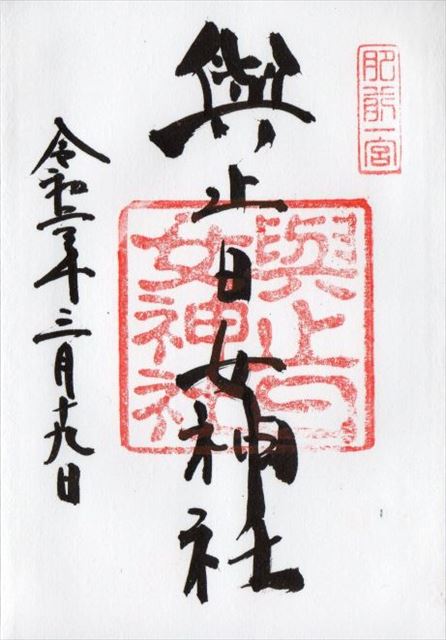 肥前一宮
與止日女神社
與止日女神社
令和二年三月十九日